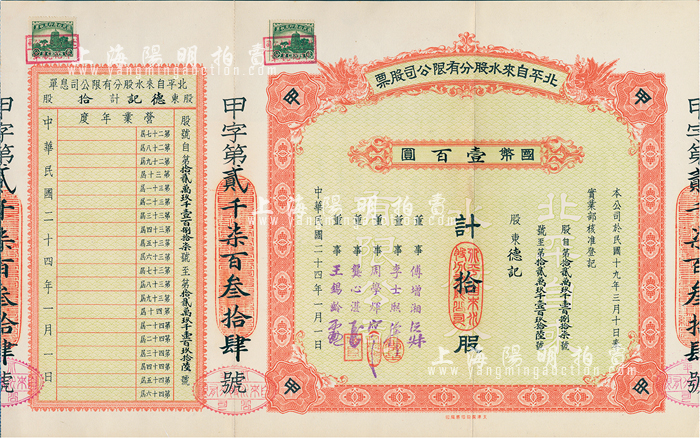 北平自來水股分有限公司股票
甲
甲
國幣壹百圓
本公司於民國十九年三月十日奉
實業部核准登記
股自第拾貳萬玖千壹百捌拾柒號
號至第拾貳萬玖千壹百玖拾陸號
股東德記
計拾股
董事傅增湘
董事李士熙
董事周學輝
董事龔心湛
董事王錫齡
中華民國二十四年一月一日
甲
甲
甲字第貳千柒百叁拾肆號
北平自來水股分有限公司息單
股東德記計拾股
營業年度
股號自第拾貳萬玖千壹百捌拾柒號至第拾貳萬玖千壹百玖拾陸號
第二十七屆
第二十八屆
第二十九屆
第三十屆
第三十一屆
第三十二屆
第三十三屆
第三十四屆
第三十五屆
第三十六屆
第三十七屆
第三十八屆
第三十九屆
第四十屆
第四十一屆
第四十二屆
第四十三屆
第四十四屆
第四十五屆
第四十六屆
中華民國二十四年一月一日
甲字第貳千柒百叁拾肆號
上海陽明拍賣
www.yangmingauction.com